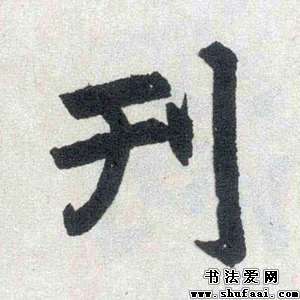 刊
书法爱网
www.shufaai.com